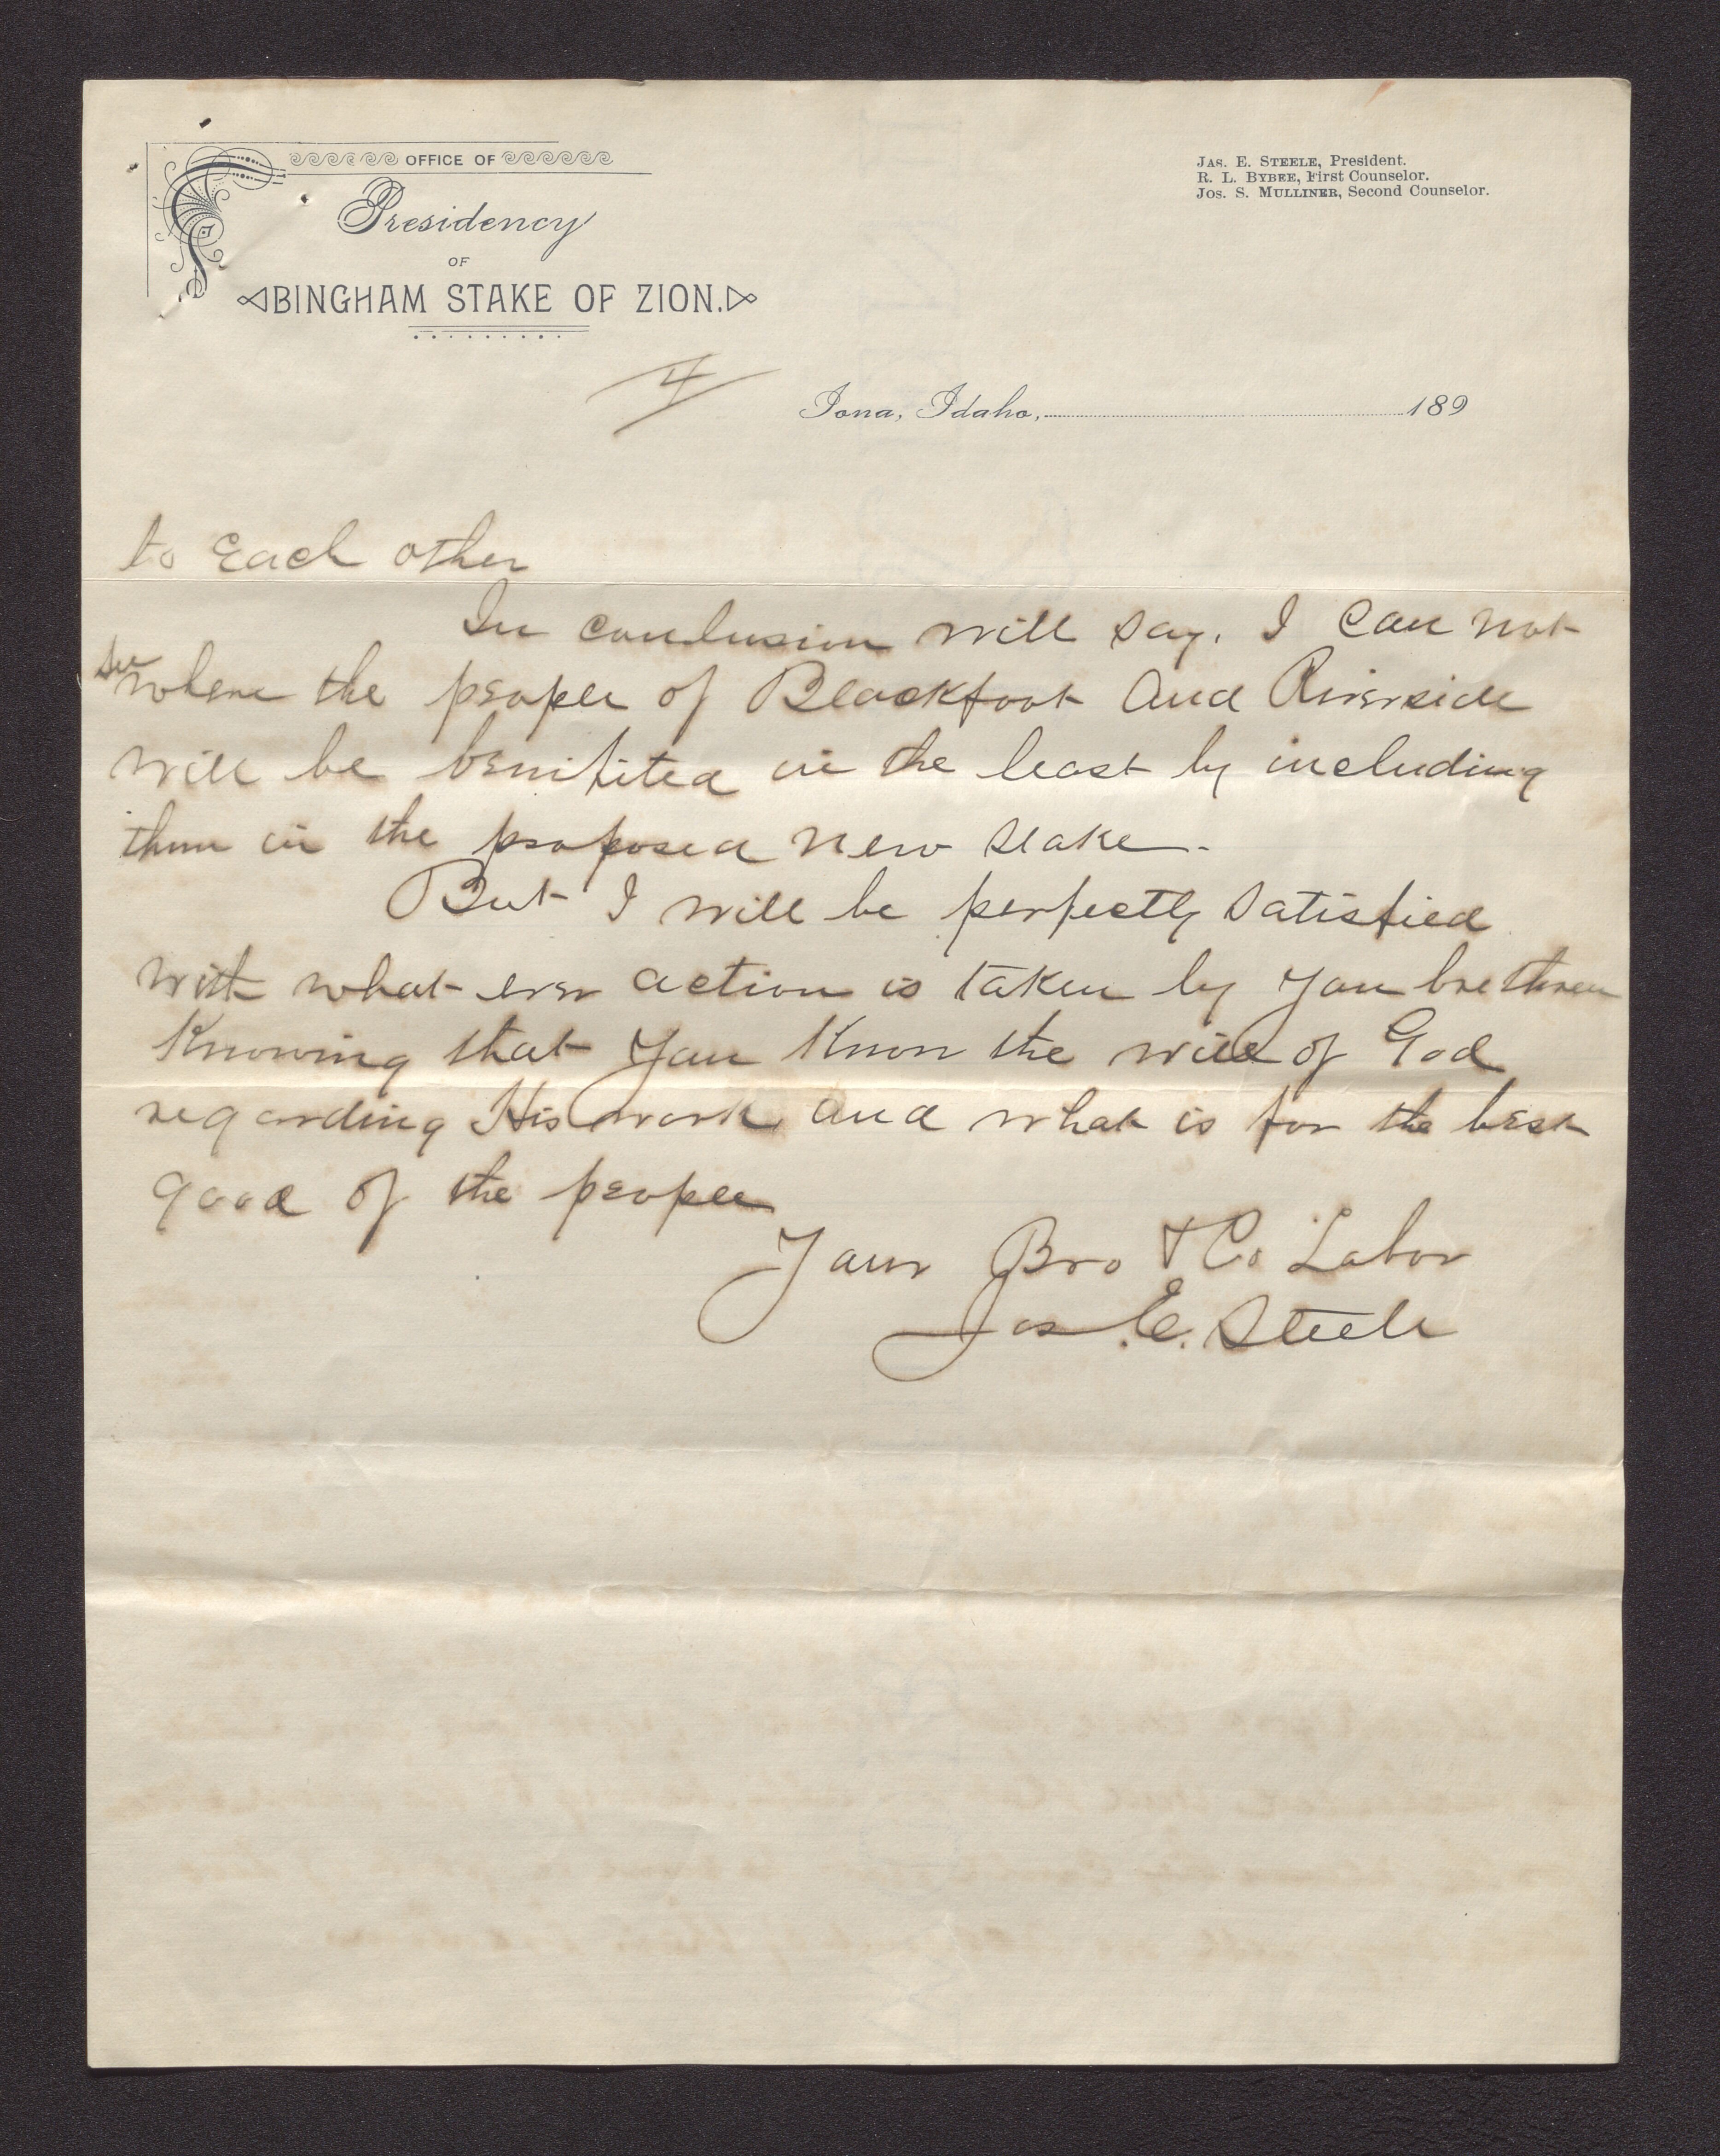 OFFICE OF
Presidency
OF
BINGHAM STAKE OF ZION.
JAS. E. STEELE, President.
R. L. BYBEE, First Counselor.
JOS. S. MULLINER, Second Counselor.
4
Iona, Idaho, 189
to Each other
In conclusion will say. I Can not
see
where the people of Blackfoot and Riverside
will be benifited in the least by including
them in the proposed new stake.
But I will be perfectly satisfied
with what ever action is taken by you brethren
Knowing that you Know the will of God
regarding His work and what is for the best
good of the people
Your Bro & Co Labor
Jas. E. Steele